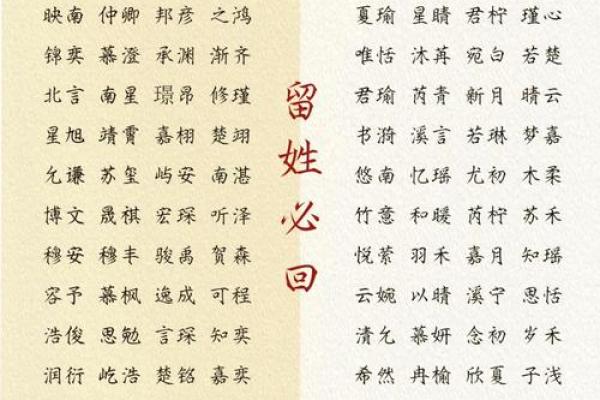 映南 仲卿 邦彦 之鸿
锦奕 慕澄 承渊 渐齐
北言 南星 璟昂 修瑾
星旭 靖霄 嘉栩 楚翊
允谦 苏玺 屿安 南湛
博文 晟祺 宏琛 听泽
穆安 穆丰 骏禹 贺森
容予 慕枫 逸成 可程
浩俊 思勉 言琛 知奕
润衍 屹浩 楚铭 嘉奕
留姓必回
夏瑜 星晴 君柠 瑾心
唯恬 沐苒 宛白 若楚
君瑜 芮青 新月 晴云
书漪 溪言 若琳 梦嘉
悠南 忆瑶 尤初 木柔
竹意 和暖 芮柠 苏禾
悦萦 羽禾 嘉月 知瑶
云婉 以晴 溪宁 思恬
清允 慕妍 念初 岁禾
希然 冉榆 欣夏 子浅